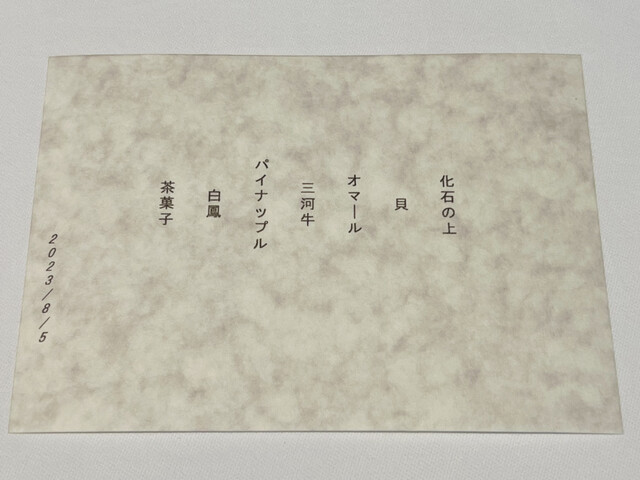 化石の上
貝
オマール
三河牛
パイナップル
白鳳
茶菓子
2023/8/5